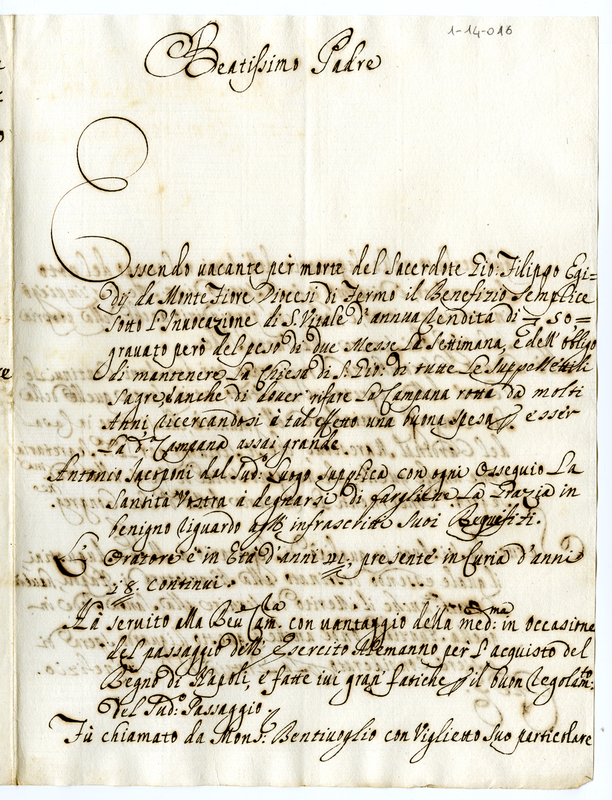 1-14-016
Beatissimo Padre
Essendo uacante per morte del Sacerdote Gio: Filippo Egi=
dij da Monte Fiore Diocesi di Fermo il Benefizio Semplice
sotto l'Inuocazione di S. Vitale d'annua rendita di 50=
grauato però del peso di due Messe la Settimana, e dell'obligo
di mantenere la Chiesa di S. Gio: di tutte le Suppellettili
Sagre, anche di douer rifare la Campana rotta da molti
Anni, ricercandosi à tal effetto una buona spesa p. esser
la d.a Campana assai grande.
Antonio dal Sud.o Luogo supplica con ogni ossequio la
Santità Vostra à degnarsi di fargliene la Grazia in
benigno riguardo agl'infrascritti suoi Requisiti.
L'Oratore è in Età d'anni 41, presente in Curia d'anni
18. continui.
Hà seruito alla Reu. Cam.la con uantaggio della med.ma: in occasione
del passaggio dell'Esercito Alemanno per l'acquisto del
Regno di Napoli, e fatte iui gran fatiche p il buon regolam.to
del Sud.o Passaggio
Fù chiamato da Mons.r Bentiuoglio con Viglietto suo particolare